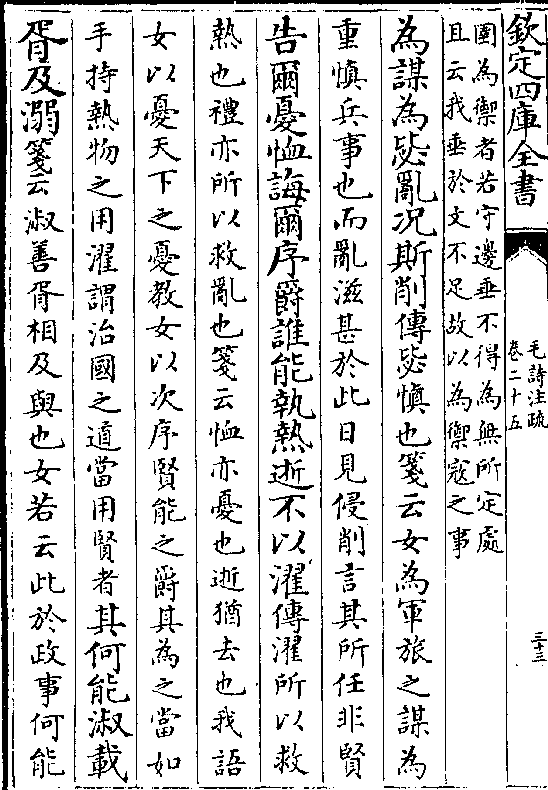 欽定四庫全書
毛詩注疏
卷二十五
三十三
圉為禦者若守邊垂不得為無所定處
且云我垂於文不足故以為禦寇之事
為謀為毖亂况斯削傳毖慎也箋云女為軍旅之謀為
重慎兵事也而亂滋甚於此日見侵削言其所任非賢
告爾憂恤誨爾序爵誰能執熱逝不以濯傳濯所以救
熱也禮亦所以救亂也箋云恤亦憂也逝猶去也我語
女以憂天下之憂教女以次序賢能之爵其為之當如
手持熱物之用濯謂治國之道當用賢者其何能淑載
胥及溺箋云淑善胥相及與也女若云此於政事何能